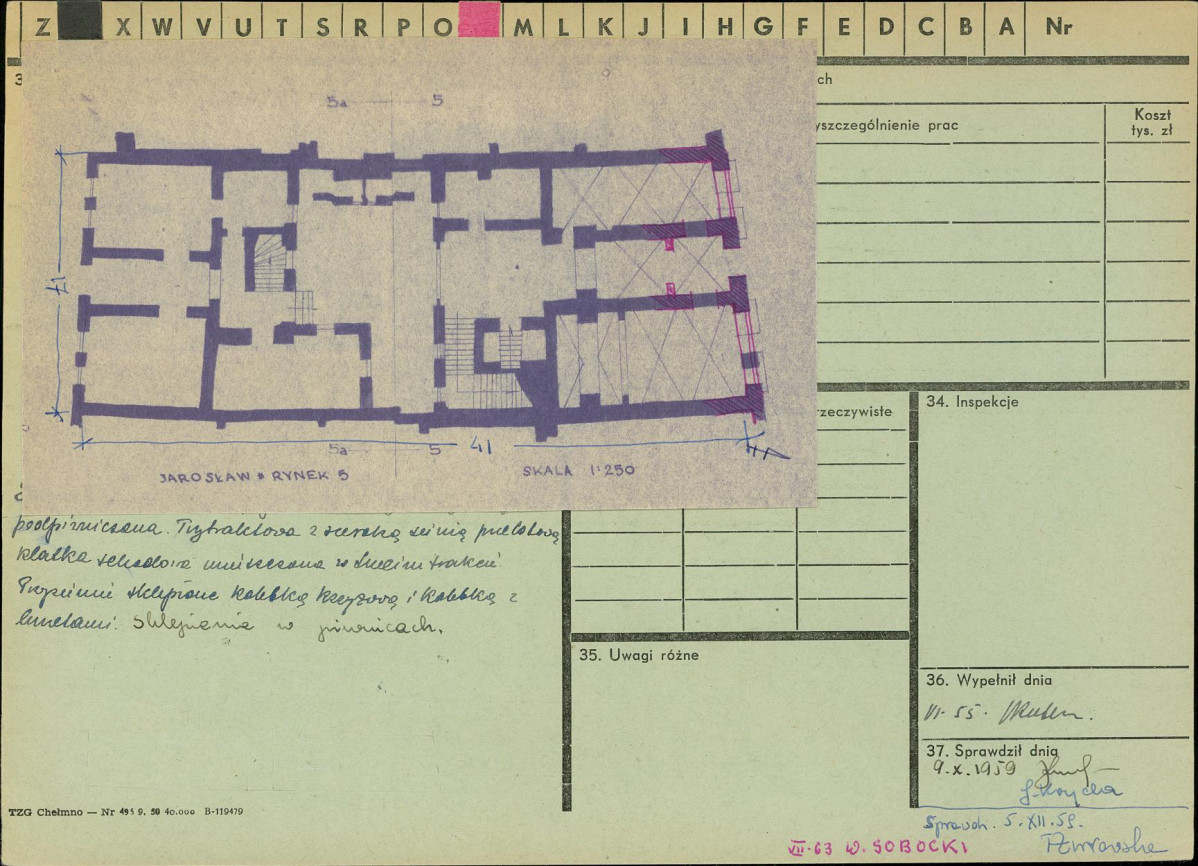 Z X W V U T S R P O M L K J I H G F E D C B A Nr
3
ch
yszczególnienie prac
Koszt
tys. zł
5a 5
17
5a 5
41
JAROSŁAW * RYNEK 5
SKALA 1:250
rzeczywiste
34. Inspekcje
podpiwniczona. Trytraktowa z szeroką sienią przelotową
klatka schodowa umieszczona w trakcie
sklepione kolebką krzyżową i kolebką z
lunetami. Sklepienia w piwnicach.
35. Uwagi różne
36. Wypełnił dnia
VI. 55.
37. Sprawdził dnia
9.X.1959
Sprawdz. 5.XII.59.
VII.63 W. SOBOCKI
TZG Chełmno — Nr 495 9. 50 40.000 B-119479